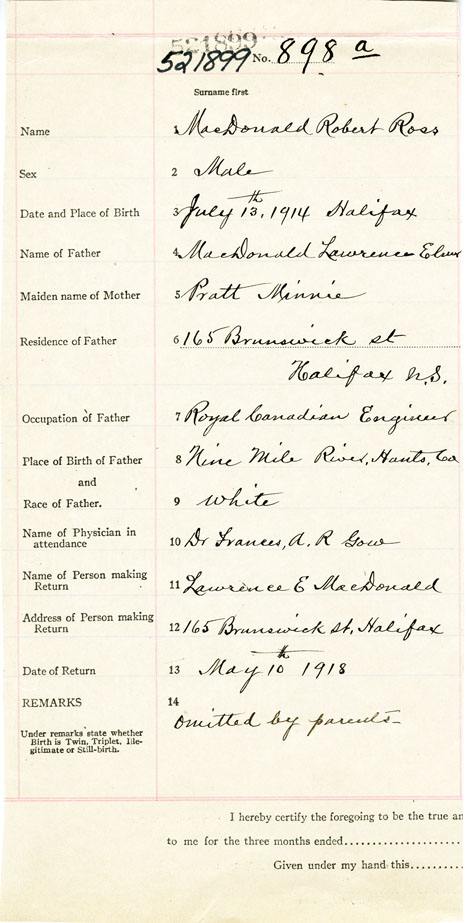 521899
521899 No. 898 a
Surname first
Name 1 MacDonald Robert Ross
Sex 2 Male
Date and Place of Birth 3 July 13th, 1914 Halifax
Name of Father 4 MacDonald Lawrence
Maiden name of Mother 5 Pratt Minnie
Residence of Father 6 165 Brunswick st
Halifax N.S.
Occupation of Father 7 Royal Canadian Engineer
Place of Birth of Father 8 Nine Mile River, Hants, Co
and
Race of Father. 9 White
Name of Physician in
attendance 10 Dr Frances, A. R Gow
Name of Person making
Return 11 Lawrence E MacDonald
Address of Person making
Return 12 165 Brunswick st, Halifax
Date of Return 13 May 10th 1918
REMARKS 14
Omitted by parents-
Under remarks state whether
Birth is Twin, Triplet, Ille-
gitimate or Still-birth.
I hereby certify the foregoing to be the true an
to me for the three months ended....................
Given under my hand this..........